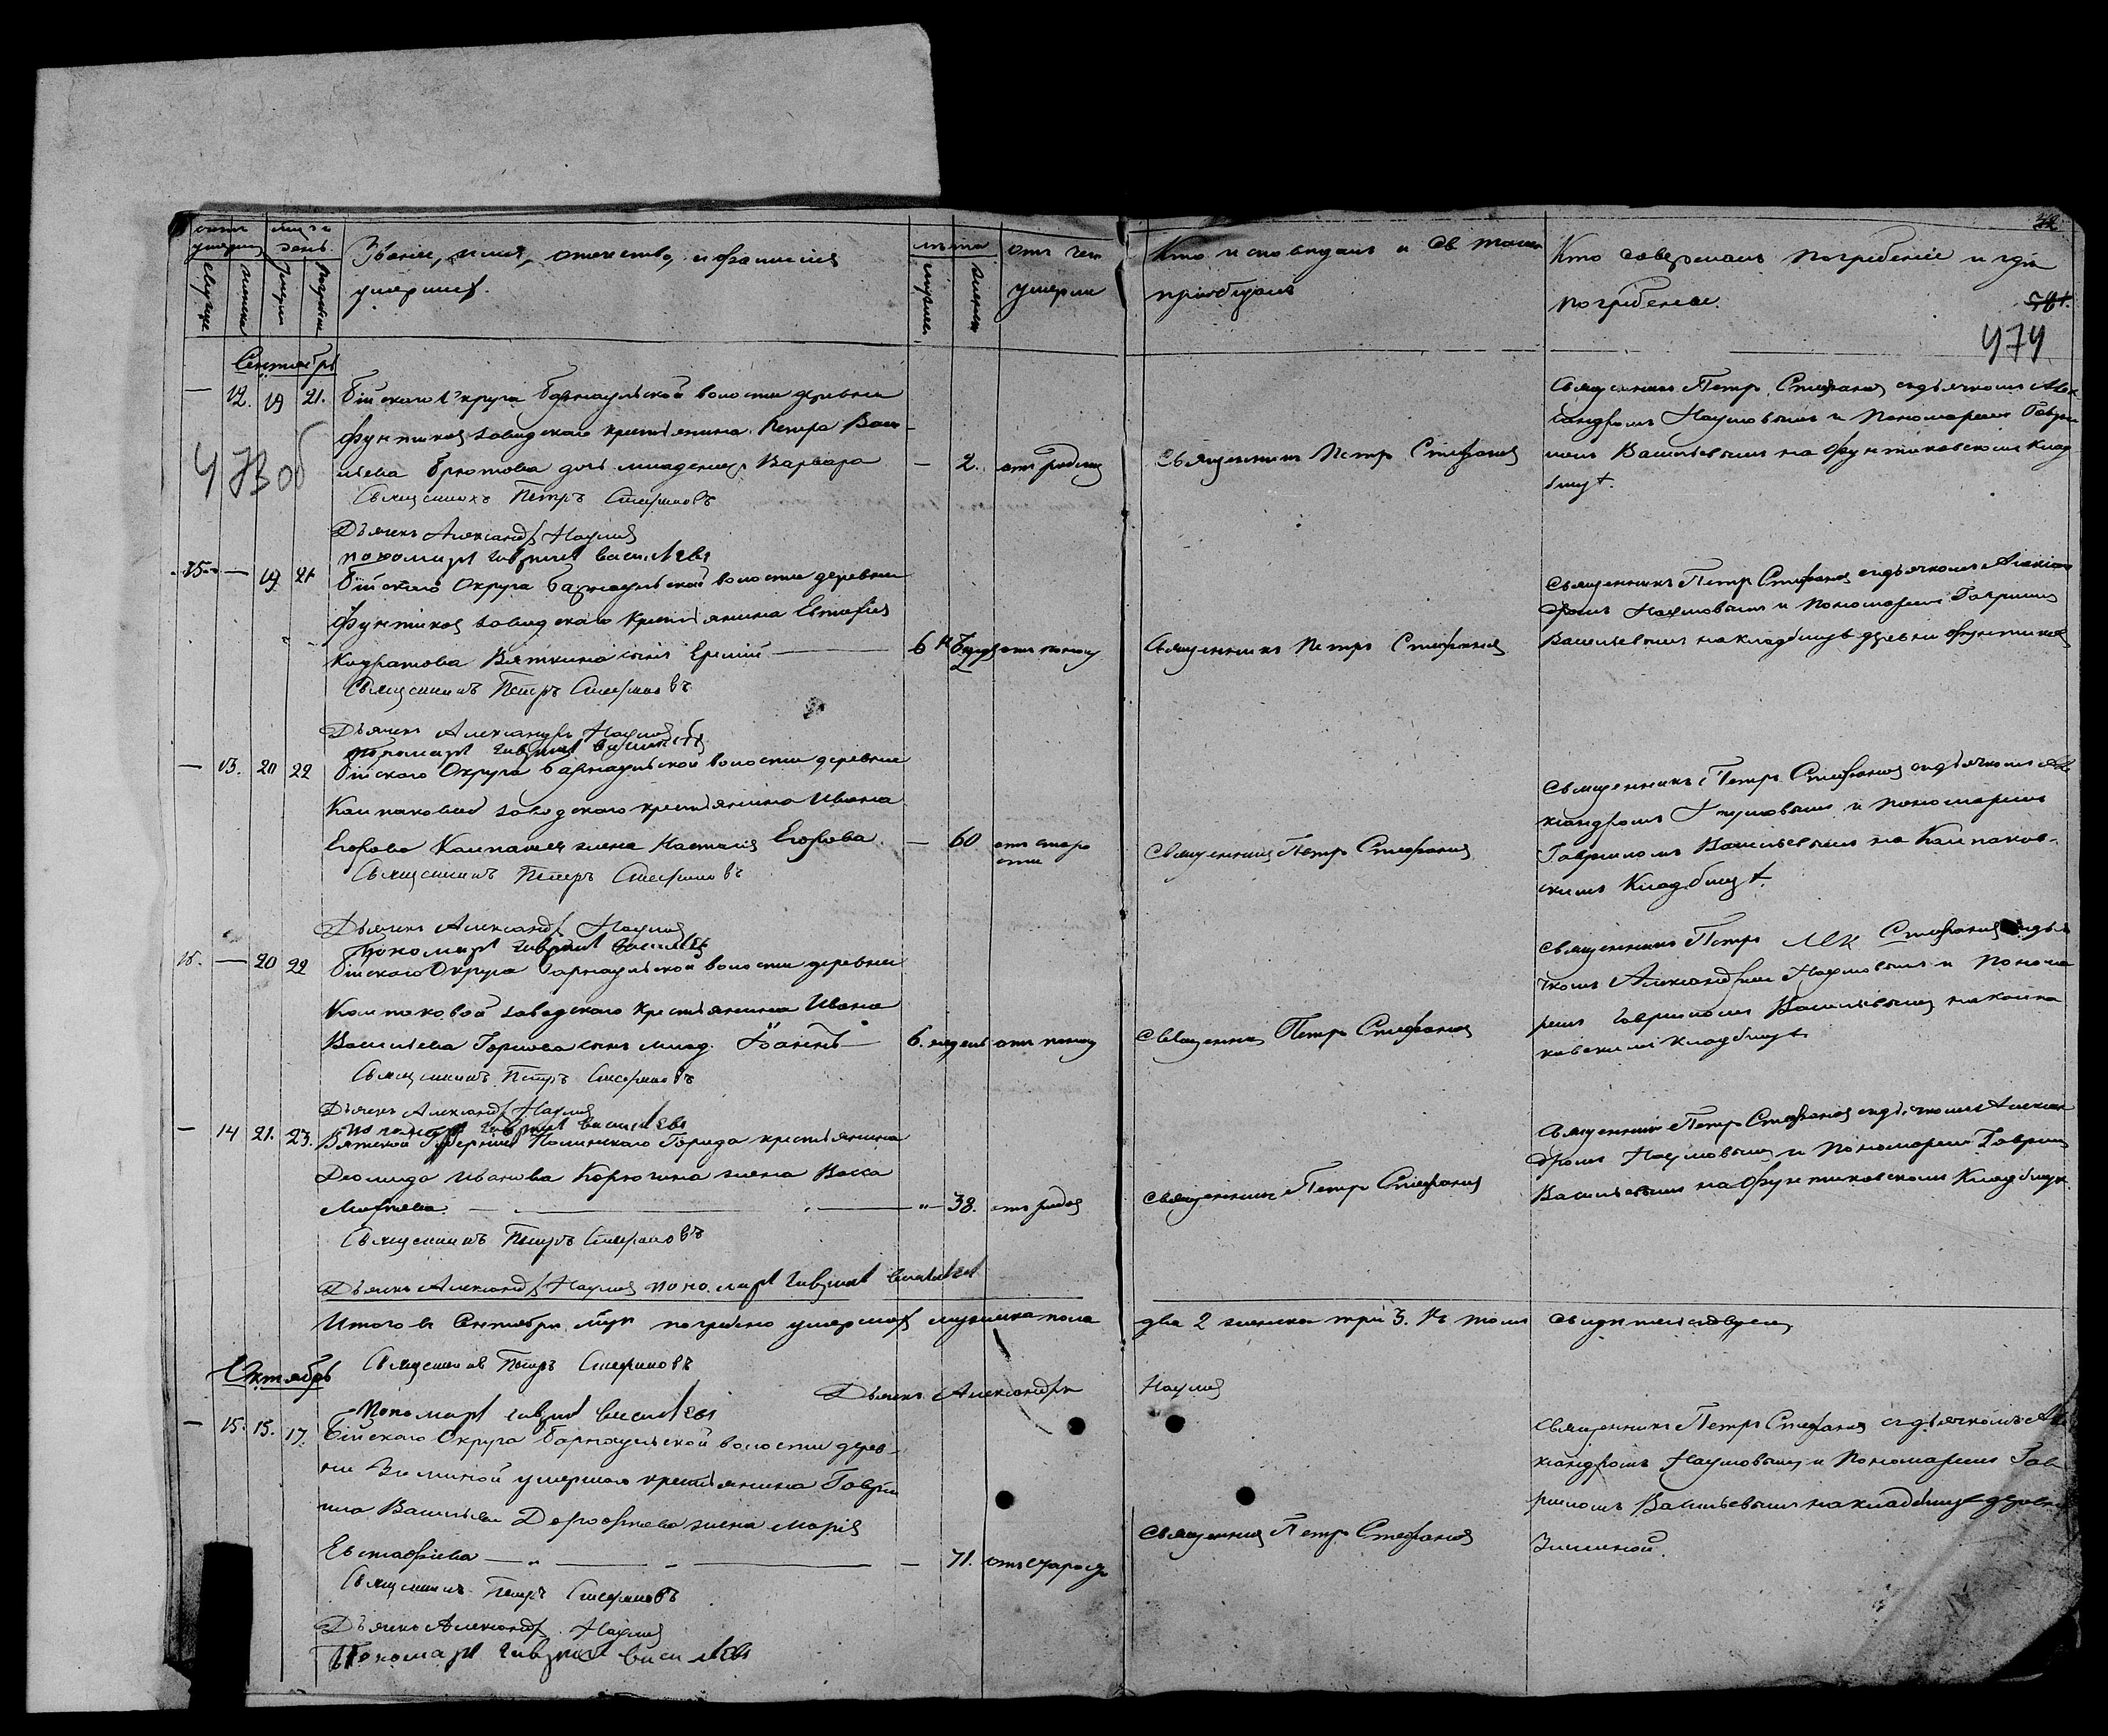 Званіе, имя, отечество, и фамилія
умершихъ.
лѣта
отъ чего
умерли
Кто исповѣдалъ и св.
пріобщалъ
Кто совершалъ погребеніе и гдѣ
погребены.
474
473 об
Сентябрь
— 12. 19 21. Бійскаго Округа Барнаульской волости деревни
Фунтиковой заводскаго крестьянина Петра Васи-
льева дочь младенецъ Варвара — 2. отъ родимца
Священникъ Петръ Стефановъ
Дьячекъ Александръ Наумовъ
пономарь гаврилъ василевъ
Священникъ Петръ Стефановъ
Священникъ Петръ Стефановъ съ дьячкомъ Алек
сандромъ Наумовымъ и Пономаремъ Гаври
ломъ Васильевымъ на Фунтиковскомъ клад
бищѣ.
15 — 19 21 Бійскаго Округа Барнаульской волости деревни
Фунтиковой заводскаго крестьянина Евтафія
Вяткина сынъ 6 отъ поносу
Священникъ Петръ Стефановъ
Дьячекъ Александръ Наумовъ
пономарь гаврилъ василевъ
Священникъ Петръ Стефановъ
Священникъ Петръ Стефановъ съ дьячкомъ Алексан
дромъ Наумовымъ и Пономаремъ Гавриломъ
Васильевымъ на кладбищѣ деревни Фунтиковой
— 13. 20 22 Бійскаго Округа Барнаульской волости деревни
Калпаковой заводскаго крестьянина Ивана
Егорова жена Наталія Егорова — 60 отъ старо
сти
Священникъ Петръ Стефановъ
Дьячекъ Александръ Наумовъ
Пономарь гаврилъ василевъ
Священникъ Петръ Стефановъ
Священникъ Петръ Стефановъ съ дьячкомъ Але
ксандромъ Наумовымъ и пономаремъ
Гавриломъ Васильевымъ на Калпаков-
скомъ Кладбищѣ.
— 20 22 Бійскаго Округа Барнаульской волости деревни
Калпаковой заводскаго крестьянина Ивана
Васильева сынъ млад. Іоаннъ — 6. недель отъ поносу
Священникъ Петръ Стефановъ
Дьячекъ Александръ Наумовъ
пономарь гаврилъ василевъ
Священникъ Петръ Стефановъ
Священникъ Петръ Стефановъ съ дья
чкомъ Александромъ Наумовымъ и Понома
ремъ Гавриломъ Васильевымъ на Калпа
ковскомъ кладбищѣ
— 14 21. 23. Вятской Губерніи Нолинскаго Города крестьянина
Діомида Иванова жена Васса
— 38. отъ родовъ
Священникъ Петръ Стефановъ
Дьячекъ Александръ Наумовъ пономарь гаврилъ василевъ
Священникъ Петръ Стефановъ
Священникъ Петръ Стефановъ съ дьячкомъ Алексан
дромъ Наумовымъ и Пономаремъ Гавриломъ
Васильевымъ на Фунтиковскомъ Кладбищѣ.
Итого въ Сентябрѣ м-цѣ погребено умершихъ мужеска пола два 2 женска три 3. Въ томъ свидетельствуемъ
Священникъ Петръ Стефановъ
Дьячекъ Александръ Наумовъ
Пономарь гаврилъ василевъ
Октябрь
— 15. 15. 17. Бійскаго Округа Барнаульской волости дерев-
ни Зиминой умершаго крестьянина Гаври
ла Васильева Дорофеева жена Марія
Евстафіева — 71. отъ старости
Священникъ Петръ Стефановъ
Дьячекъ Александръ Наумовъ
Пономарь гаврилъ василевъ
Священникъ Петръ Стефановъ
Священникъ Петръ Стефановъ съ дьячкомъ Але
ксандромъ Наумовымъ и Пономаремъ Гав
риломъ Васильевымъ на кладбищѣ деревни
Зиминой.